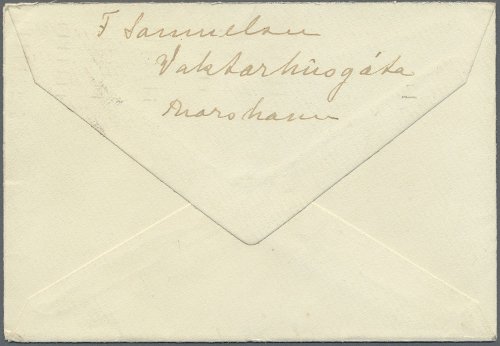 F Samuelsen
Vaktarhúsgáta
Thorshavn